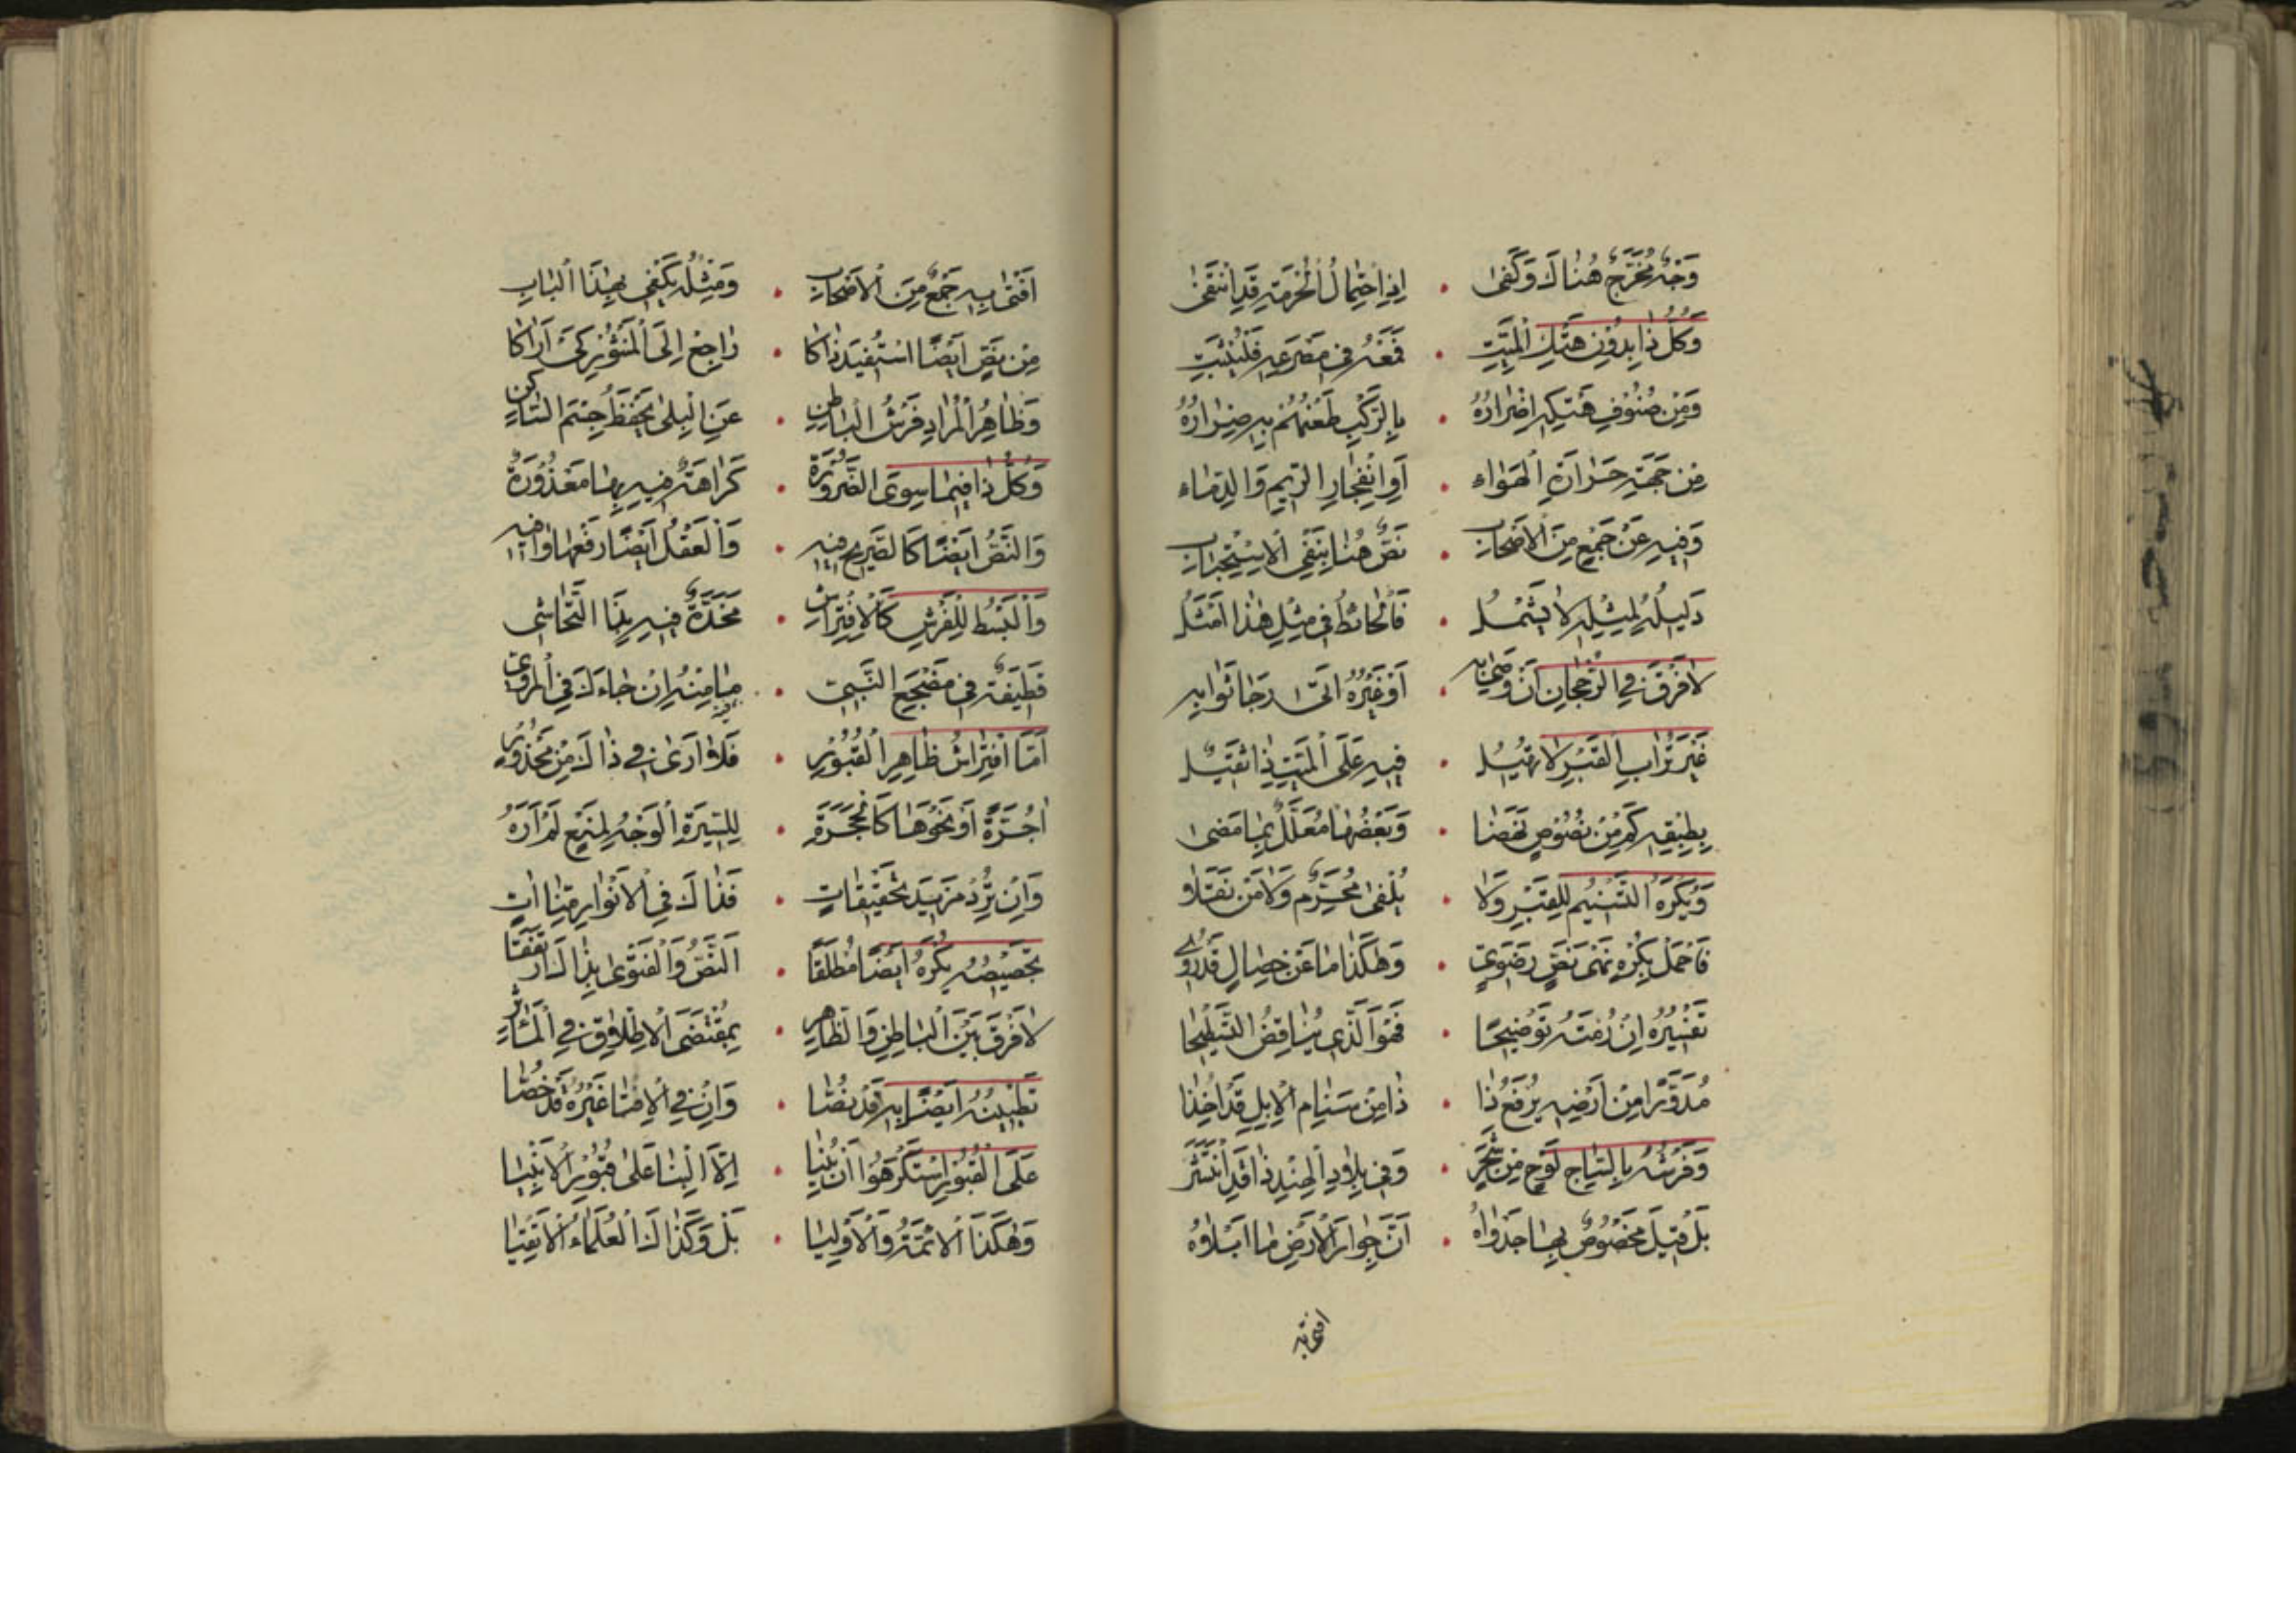 وَجْهٌ مُخَرَّجٌ هُنَاكَ وَكَفَى • اِذِ احْتِمَالُ الْحُرْمَةِ قَدِ انْتَفَىٰ
وَكُلُّ ذَا بِدُوْنِ هَتْكِ الْمَيِّتِ • فَمَعْهُ فِي مَصْرَعِهِ فَلْيُثْبَتِ
وَمِنْ صُنُوْفِ هَتْكِهِ اِضْرَارُهُ • بِالرَّكْبِ طَعْنُهُمْ بِهِ ضِرَارُهُ
مِنْ جِهَةِ حَرَارَةِ الْهَوَاءِ • اَوِ انْفِجَارِ الرِّيْمِ وَالدِّمَاءِ
وَفِيْهِ عَنْ جَمْعٍ مِنَ الْاَصْحَابِ • نَصٌّ هُنَا بِنَفْيِ الْاِسْتِحْبَابِ
دَلِيْلُهُ لِمِثْلِهِ لَا يَشْمُلُ • فَالْحَائِطُ فِي مِثْلِ هٰذَا اَمْثَلُ
لَا فَرْقَ فِي الرُّجْحَانِ اَنْ وَصَّىٰ بِهِ • اَوْ غَيْرُهُ اَتَىٰ رَجَا ثَوَابِهِ
غَيْرَ تُرَابِ الْقَبْرِ لَا تُهِيْلُ • فِيْهِ عَلَى الْمَيِّتِ ذَا ثَقِيْلُ
بِطِبْقِهِ كَمْ مِنْ نُصُوْصٍ نَهَضَا • وَبَعْضُهَا مُعَلَّلٌ بِمَا مَضَىٰ
وَيُكْرَهُ التَّسْنِيْمُ لِلْقَبْرِ وَلَا • يُلْفَىٰ مُحَرِّمٌ وَلَا مَنْ نَقَلَا
فَاحْمِلْ بِكُرْهٍ نَهْيَ نَصٍّ رَضَوِيّ • وَهٰكَذَا مَا عَنْ خِصَالٍ قَدْ رُوِيْ
تَفْسِيْرُهُ اِنْ رُمْتَهُ تَوْضِيْحَا • فَهُوَ الَّذِي يُنَاقِضُ التَّسْطِيْحَا
مُدَوَّرًا مِنْ اَرْضِهِ يُرْفَعُ ذَا • ذَا مِنْ سَنَامِ الْاِبِلِ قَدْ اُخِذَا
وَفَرْشُهُ بِالسَّاجِ لَوْحٍ مِنْ شَجَرٍ • وَفِي بِلَادِ الْهِنْدِ ذَا قَدِ انْتَشَرَ
بَلْ قِيْلَ مَخْصُوْصٌ بِهَا جَدْوَاهُ • اَنَّ جِوَارَ الْاَرْضِ مَا اَبْلَاهُ
افتى به
اَفْتَىٰ بِهِ جَمْعٌ مِنَ الْاَصْحَابِ • وَمِثْلُهُ يَكْفِي بِهٰذَا الْبَابِ
مِنْ نَصٍّ اَيْضًا اسْتُفِيْدَ ذَاكَا • رَاجِعْ اِلَى الْمَنْثُوْرِ كَيْ اَرَاكَا
وَظَاهِرُ الْمُرَادِ فَرْشُ الْبَاطِنِ • عَنِ الْبِلَىٰ يَحْفَظُ جِسْمَ السَّاكِنِ
وَكُلُّ ذَا فِيْمَا سِوَى الضَّرُوْرَةْ • كَرَاهَةٌ فِيْهِ بِهَا مَعْذُوْرَةْ
وَالنَّصُّ اَيْضًا كَالصَّرِيْحِ فِيْهِ • وَالْعَقْلُ اَيْضًا رَفْعُهَا وَافِيْهِ
وَالْبَسْطُ لِلْفَرْشِ كَالْاِفْتِرَاشِ • مِخَدَّةٌ فِيْهِ بِنَا التَّحَاشِي
قَطِيْفَةٌ فِي مَضْجَعِ النَّبِيِّ • مَا مِنْهُ اِنْ جَاءَكَ فِي الْمَرْوِيّ
اَمَّا افْتِرَاشُ ظَاهِرِ الْقُبُوْرِ • فَلَا اَرَىٰ فِي ذَاكَ مِنْ مَحْذُوْرِ
اٰجُرَّةً اَوْ نَحْوَهَا كَالْحَجَرَةِ • لِلسِّيْرَةِ الْوَجْهُ لِمَنْعٍ لَمْ اَرَهُ
وَاِنْ تُرِدْ مَزِيْدَ تَحْقِيْقَاتٍ • فَذَاكَ فِي الْاَنْوَارِ مِنَّا اٰتٍ
تَجْصِيْصُهُ يُكْرَهُ اَيْضًا مُطْلَقًا • اَلنَّصُّ وَالْفَتْوَىٰ بِذَاكَ اتَّفَقَا
لَا فَرْقَ بَيْنَ الْبَاطِنِ وَالظَّاهِرِ • بِمُقْتَضَى الْاِطْلَاقِ فِي الْمَاٰثِرِ
تَطْيِيْنُهُ اَيْضًا بِهِ قَدْ نُصَّا • وَاِنْ فِي الْاِفْتَا غَيْرُهُ قَدْ خُصَّا
عَلَى الْقُبُوْرِ اسْتَكْرَهُوْا اَنْ يُبْنَيَا • اِلَّا الْبِنَا عَلَىٰ قُبُوْرِ الْاَنْبِيَا
وَهٰكَذَا الْاَئِمَّةُ وَالْاَوْلِيَا • بَلْ وَكَذَاكَ الْعُلَمَاءُ الْاَتْقِيَا